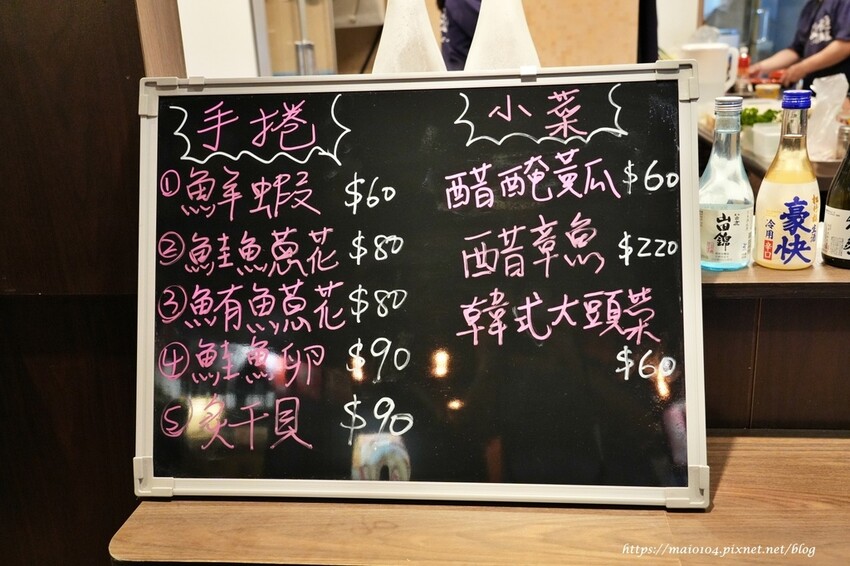 手捲
①鮮蝦 $60
②鮭魚蔥花 $80
③鮪魚蔥花 $80
④鮭魚卵 $90
⑤炙干貝 $90
小菜
醋醃黃瓜 $60
醋章魚 $220
韓式大頭菜
$60
山田錦
豪快
冷用
辛口
https://maio104.pixnet.net/blog